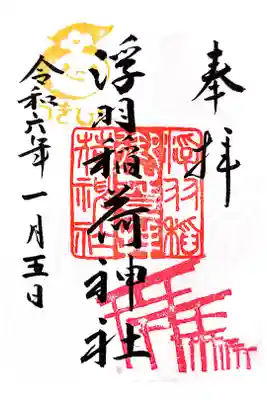 奉拝
浮羽稲荷神社
浮羽稲荷神社
令和六年一月五日
うきしゅ